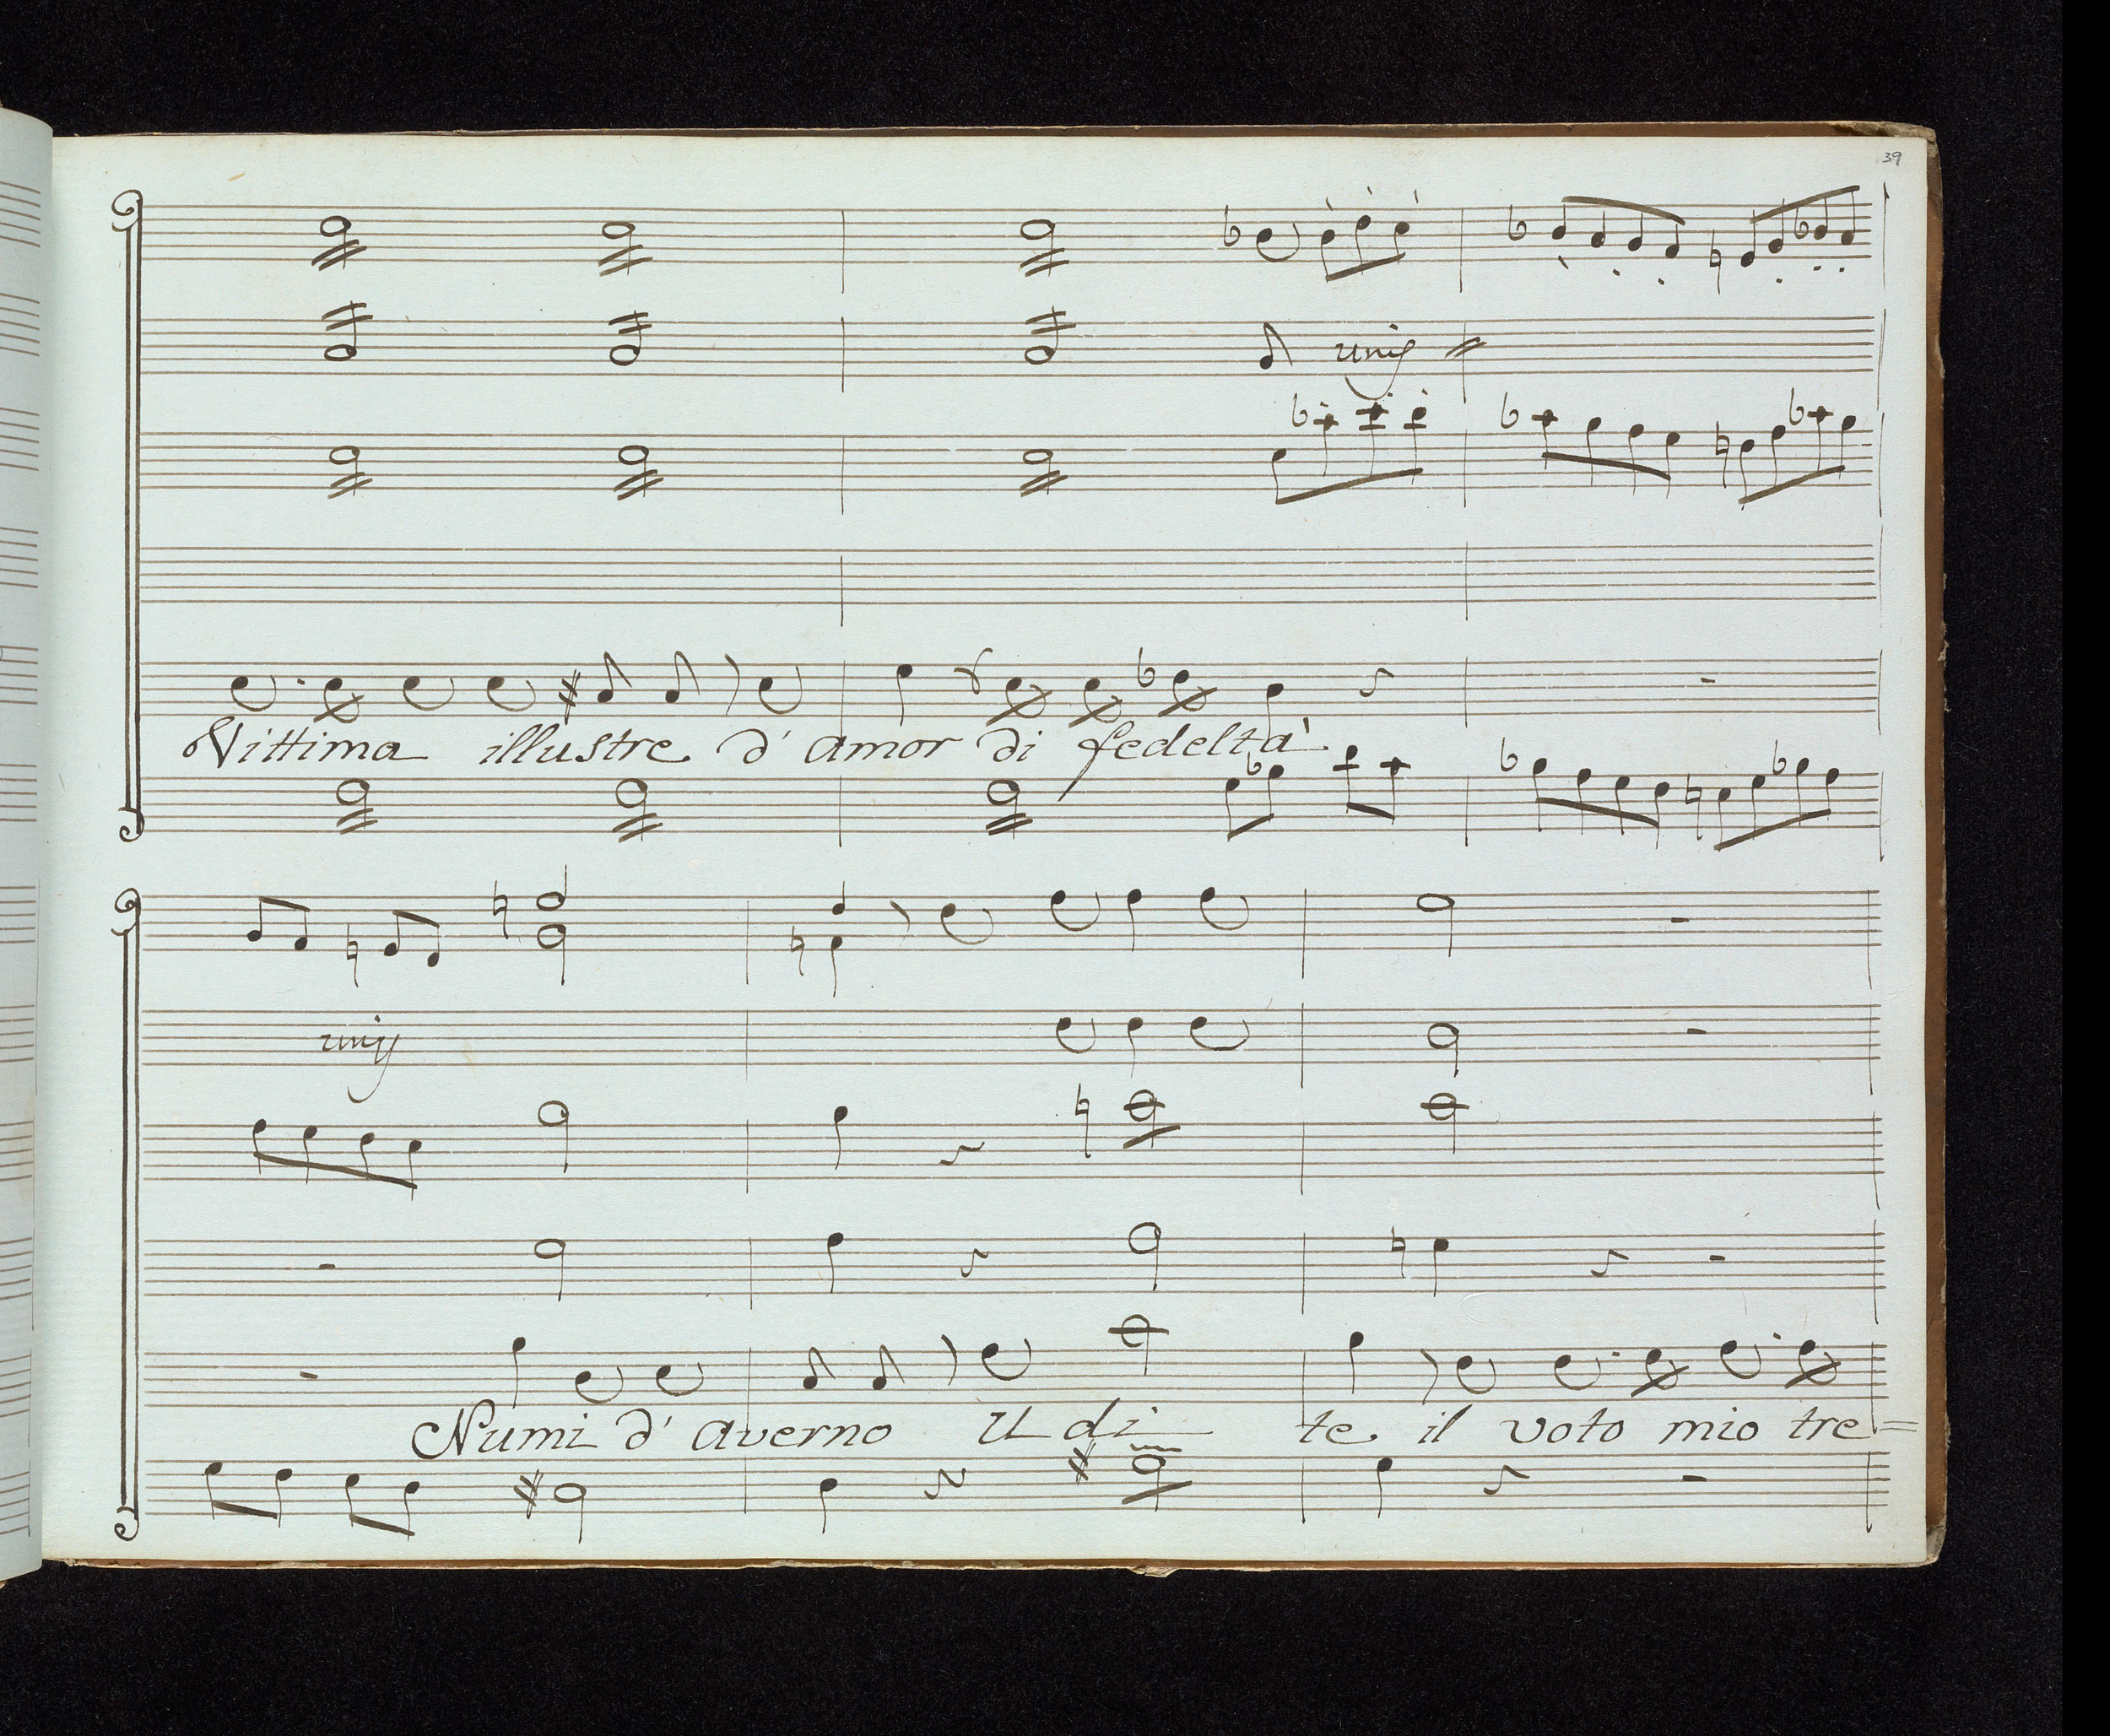 39
unis
Vittima illustre d' amor di fedeltà
unis
Numi d' averno Udi te il voto mio tre=